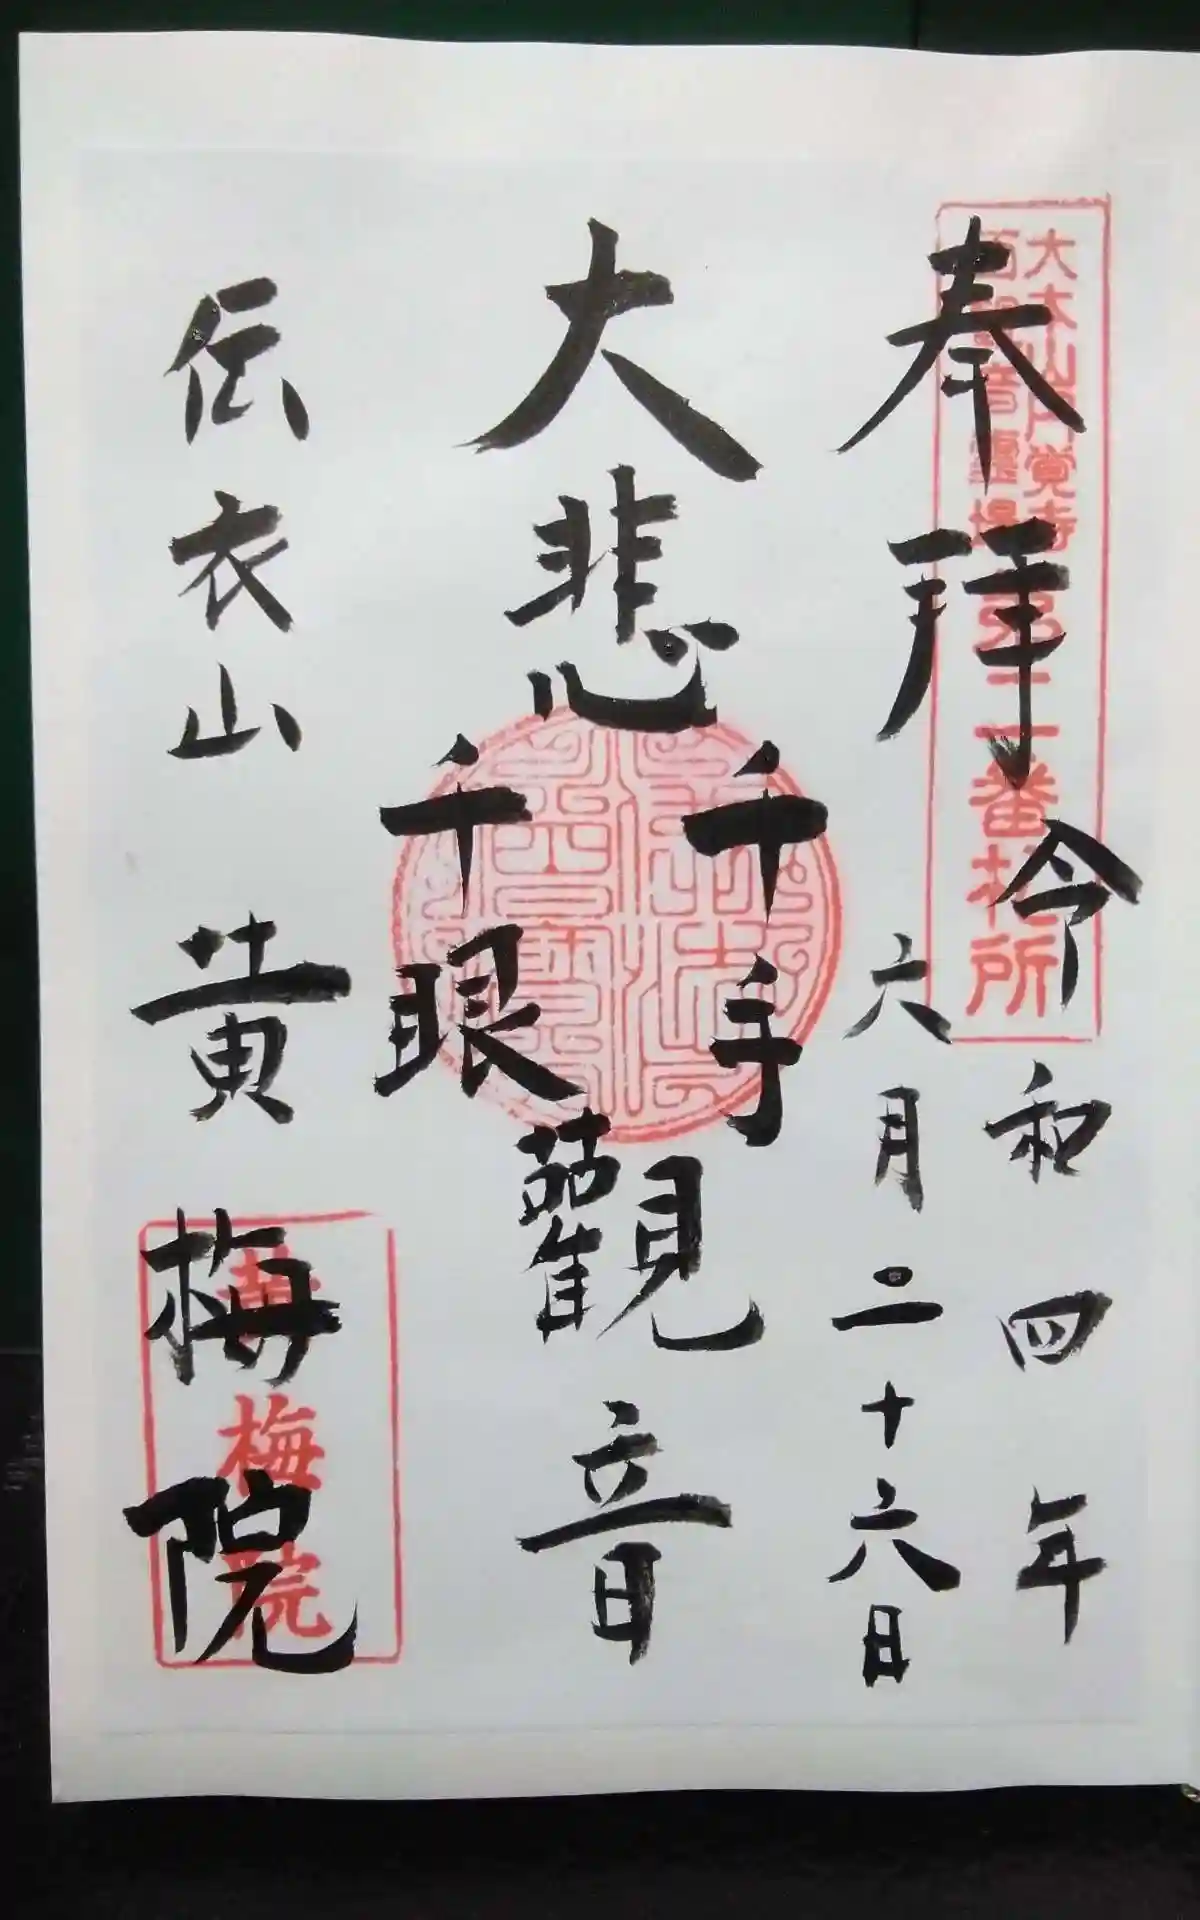 奉拝
令和四年
六月二十六日
大悲
千手
千眼
觀音
伝衣山
黄梅院
大本山円覚寺
百観音霊場第二十一番札所
黄梅院